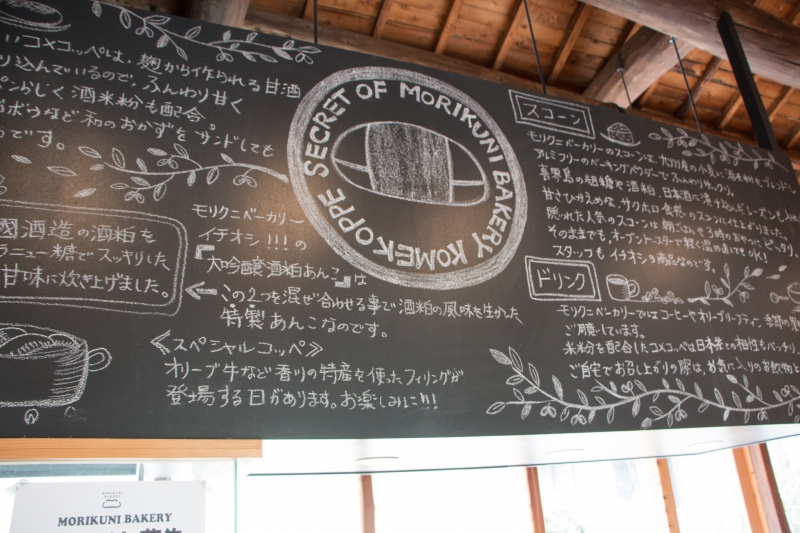 いコメコッペは、麹から作られる甘酒
り込んでいるので、ふんわり甘く
酒米粉も配合。
ゴボウなど和のおかずをサンドしても
です。
國酒造の酒粕を
ラニュー糖でスッキリした
甘味に炊き上げました。
SECRET OF MORIKUNI BAKERY KOMEKOPPE
モリクニベーカリー
イチオシ!!!の
『大吟醸酒粕あんこ』は
この2つを混ぜ合わせる事で酒粕の風味を生かした
特製あんこなのです。
≪スペシャルコッペ≫
オリーブ牛など香川の特産を使ったフィリングが
登場する日があります。お楽しみに!!!
スコーン
モリクニベーカリーのスコーンは、の小麦に酒米粉をブレンド。
アルミフリーのベーキングパウダーでふんわりサックリ。
喜界島の粗糖や酒粕、日本酒に
甘さひかえめな、サクホロ食感のスコーンに仕上がりました。
隠れた人気のスコーンは朝ごはんや3時のおやつにピッタリ。
そのままでも、オーブントースターで軽く温め直してもOK!
スタッフもイチオシの商品なのです。
ドリンク
モリクニベーカリーではコーヒーやオリーブリーフティ、季節の
ご用意しています。
米粉を配合したコメコッペは日本茶との相性もバッチリ
ご自宅でお召し上りの際は、お気に入りのお飲物と
MORIKUNI BAKERY
MORIKUNI BAKERY